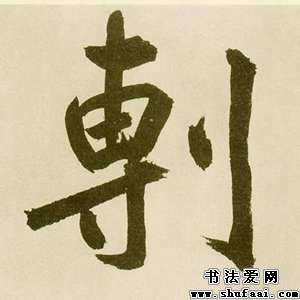 剸
书法爱网
www.shufaai.com